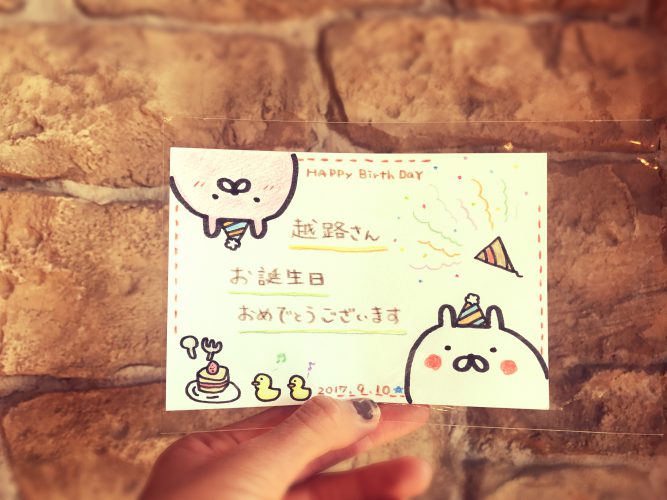 HAPPy BirtH DAY
越路さん
お誕生日
おめでとうございます
2017.9.10